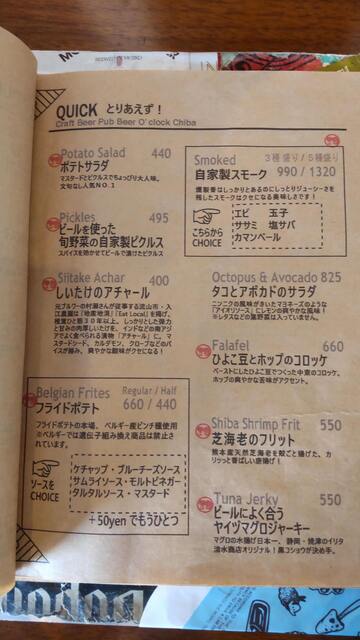 QUICK とりあえず！
Craft Beer Pub Beer O'clock Chiba
Potato Salad 440
ポテトサラダ
マスタードとピクルスでちょっぴり大人味。
文句なし人気NO.1
Pickles 495
ビールを使った
旬野菜の自家製ピクルス
スパイスを効かせてビールで漬けたピクルス
Siitake Achar 400
しいたけのアチャール
元ブルワーの村瀬さんが従事する流山市・入
江農園は「地産地消」「Eat Local」を掲げ、
椎茸ひと筋30年以上。しっかりとした弾力
と甘みの肉厚しいたけを、インドなどの南アジ
アでよく食べられる漬物「アチャール」に。マ
スタードシード、カルダモン、クローブなどのスパ
イスが絡み、爽やかな酸味がクセになる！
Belgian Frites Regular / Half
フライドポテト 660 / 440
フライドポテトの本場、ベルギー産ビンチ種使用
※ベルギーでは遺伝子組み換え商品は禁止さ
れています。
ソースを
CHOICE
ケチャップ・ブルーチーズソース
サムライソース・モルトビネガー
タルタルソース・マスタード
+50yen でもうひとつ
Smoked 3種盛り/5種盛り
自家製スモーク 990 / 1320
燻製香はしっかりとあるのにしっとりジューシーさを
残したスモークはクセになる美味しさです！
こちらから
CHOICE
エビ 玉子
ササミ 塩サバ
カマンベール
Octopus & Avocado 825
タコとアボカドのサラダ
ニンニクの風味がきいたマヨネーズのような
「アイオリソース」にレモンの爽やかな風味！
※レタスなどの葉野菜は入っていません。
Falafel 660
ひよこ豆とホップのコロッケ
ペーストにしたひよこ豆でつくった中東のコロッケ。
ホップの爽やかな苦味がアクセント。
Shiba Shrimp Frit 550
芝海老のフリット
熊本産天然芝海老を殻ごと揚げた、カ
リッっと香ばしい唐揚げ！
Tuna Jerky 550
ビールによく合う
ヤイヅマグロジャーキー
マグロの水揚げ日本一、静岡・焼津のイリタ
清水商店オリジナル！黒コショウが決め手。